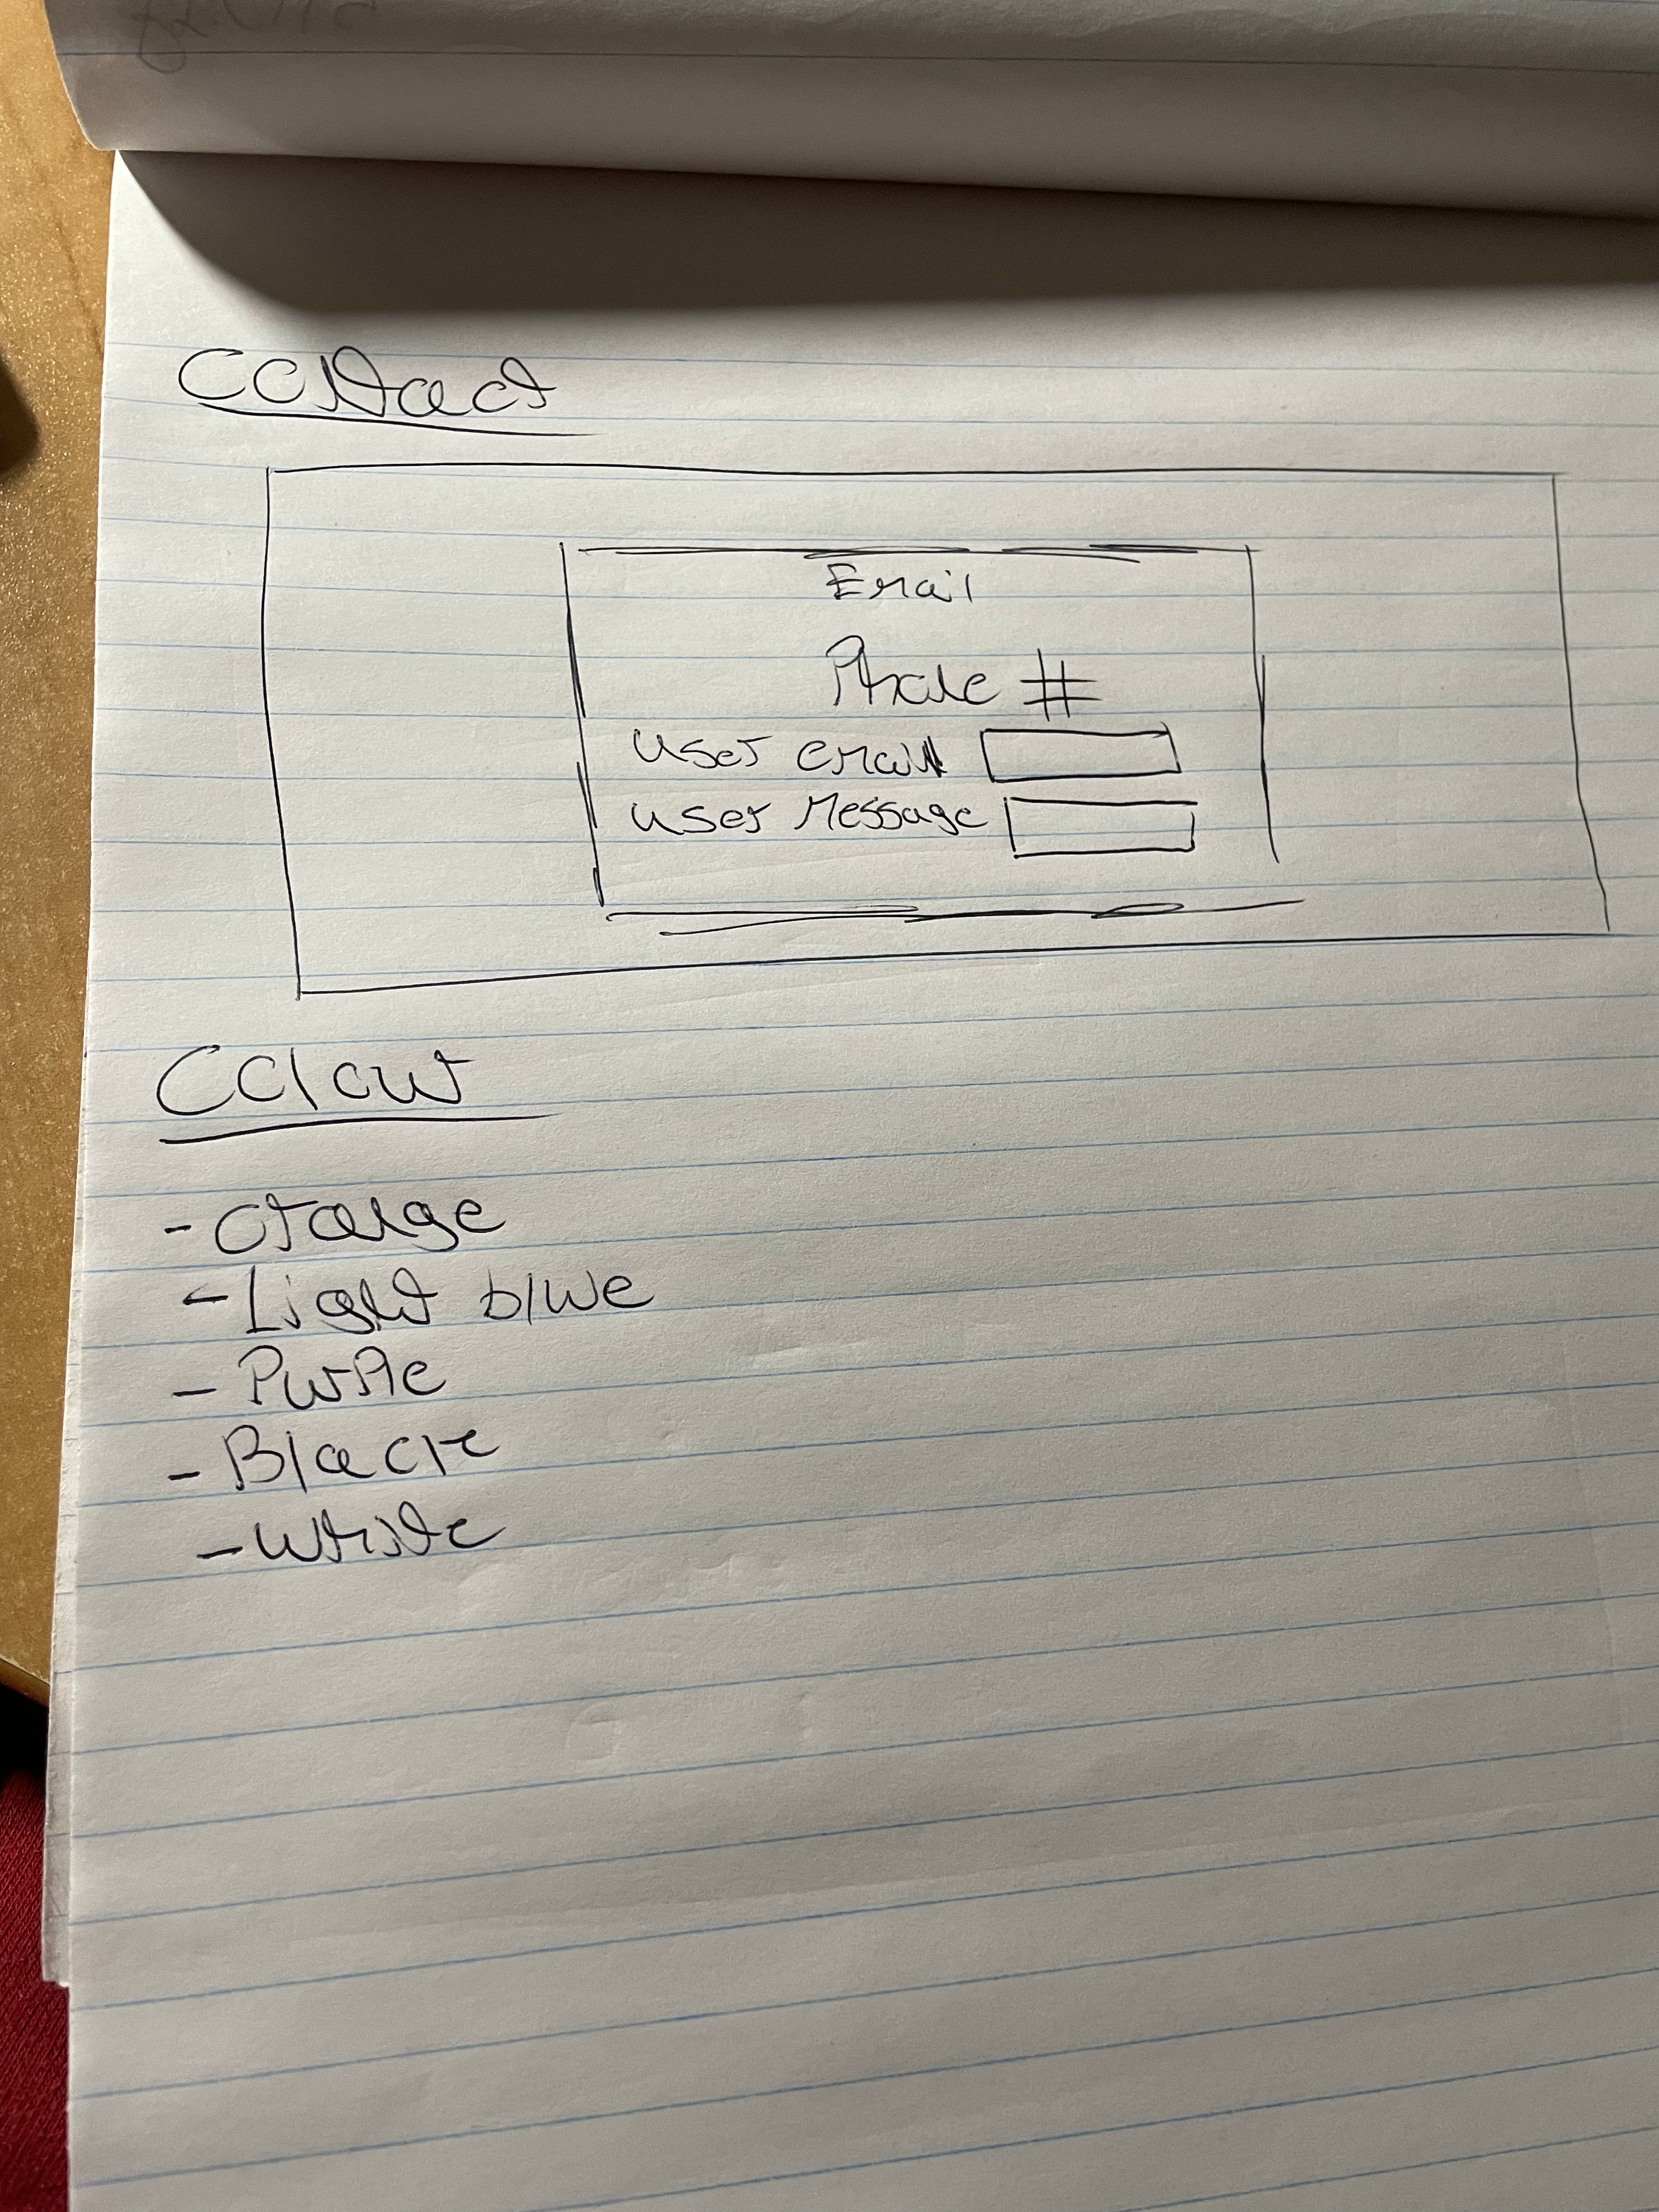 Contact
Email
Phone #
User email
User Message
Colour
- Orange
- Light blue
- Purple
- Black
- White